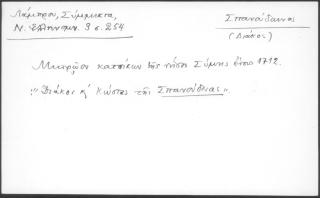 Λάμπρου, Σύμμικτα,
Ν. Ἑλληνομν. 3 σ. 254
Σπανούδαινας
(Διάκος)
κατοίκων τῆς νήσου Σύμης ἔτους 1712.
"Διάκος κ' Κώστας τῆς Σπανούδαινας".